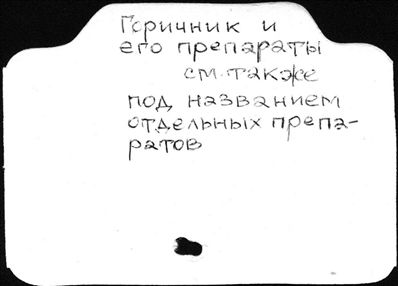 Горичник и
его препараты
см. также
под названием
отдельных препа-
ратов